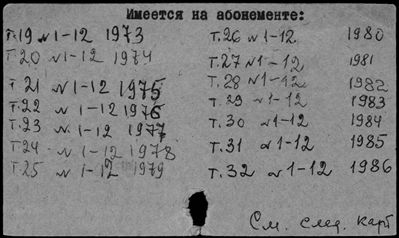 Имеется на абонементе:
т.19 №1-12 1973
Т.20 №1-12 1974
Т 21 №1-12 1975
Т.22 № 1-12 1976
Т.23 №.1-12 1977
Т24 №.1-12 1978
Т25 №1-12 1979
Т.26 №1-12 1980
Т.27 №1-12 1981
Т.28 №1-12 1982
Т.29 №1-12 1983
Т.30 №1-12 1984
Т.31 №1-12 1985
Т.32 №1-12 1986
См. след. карт